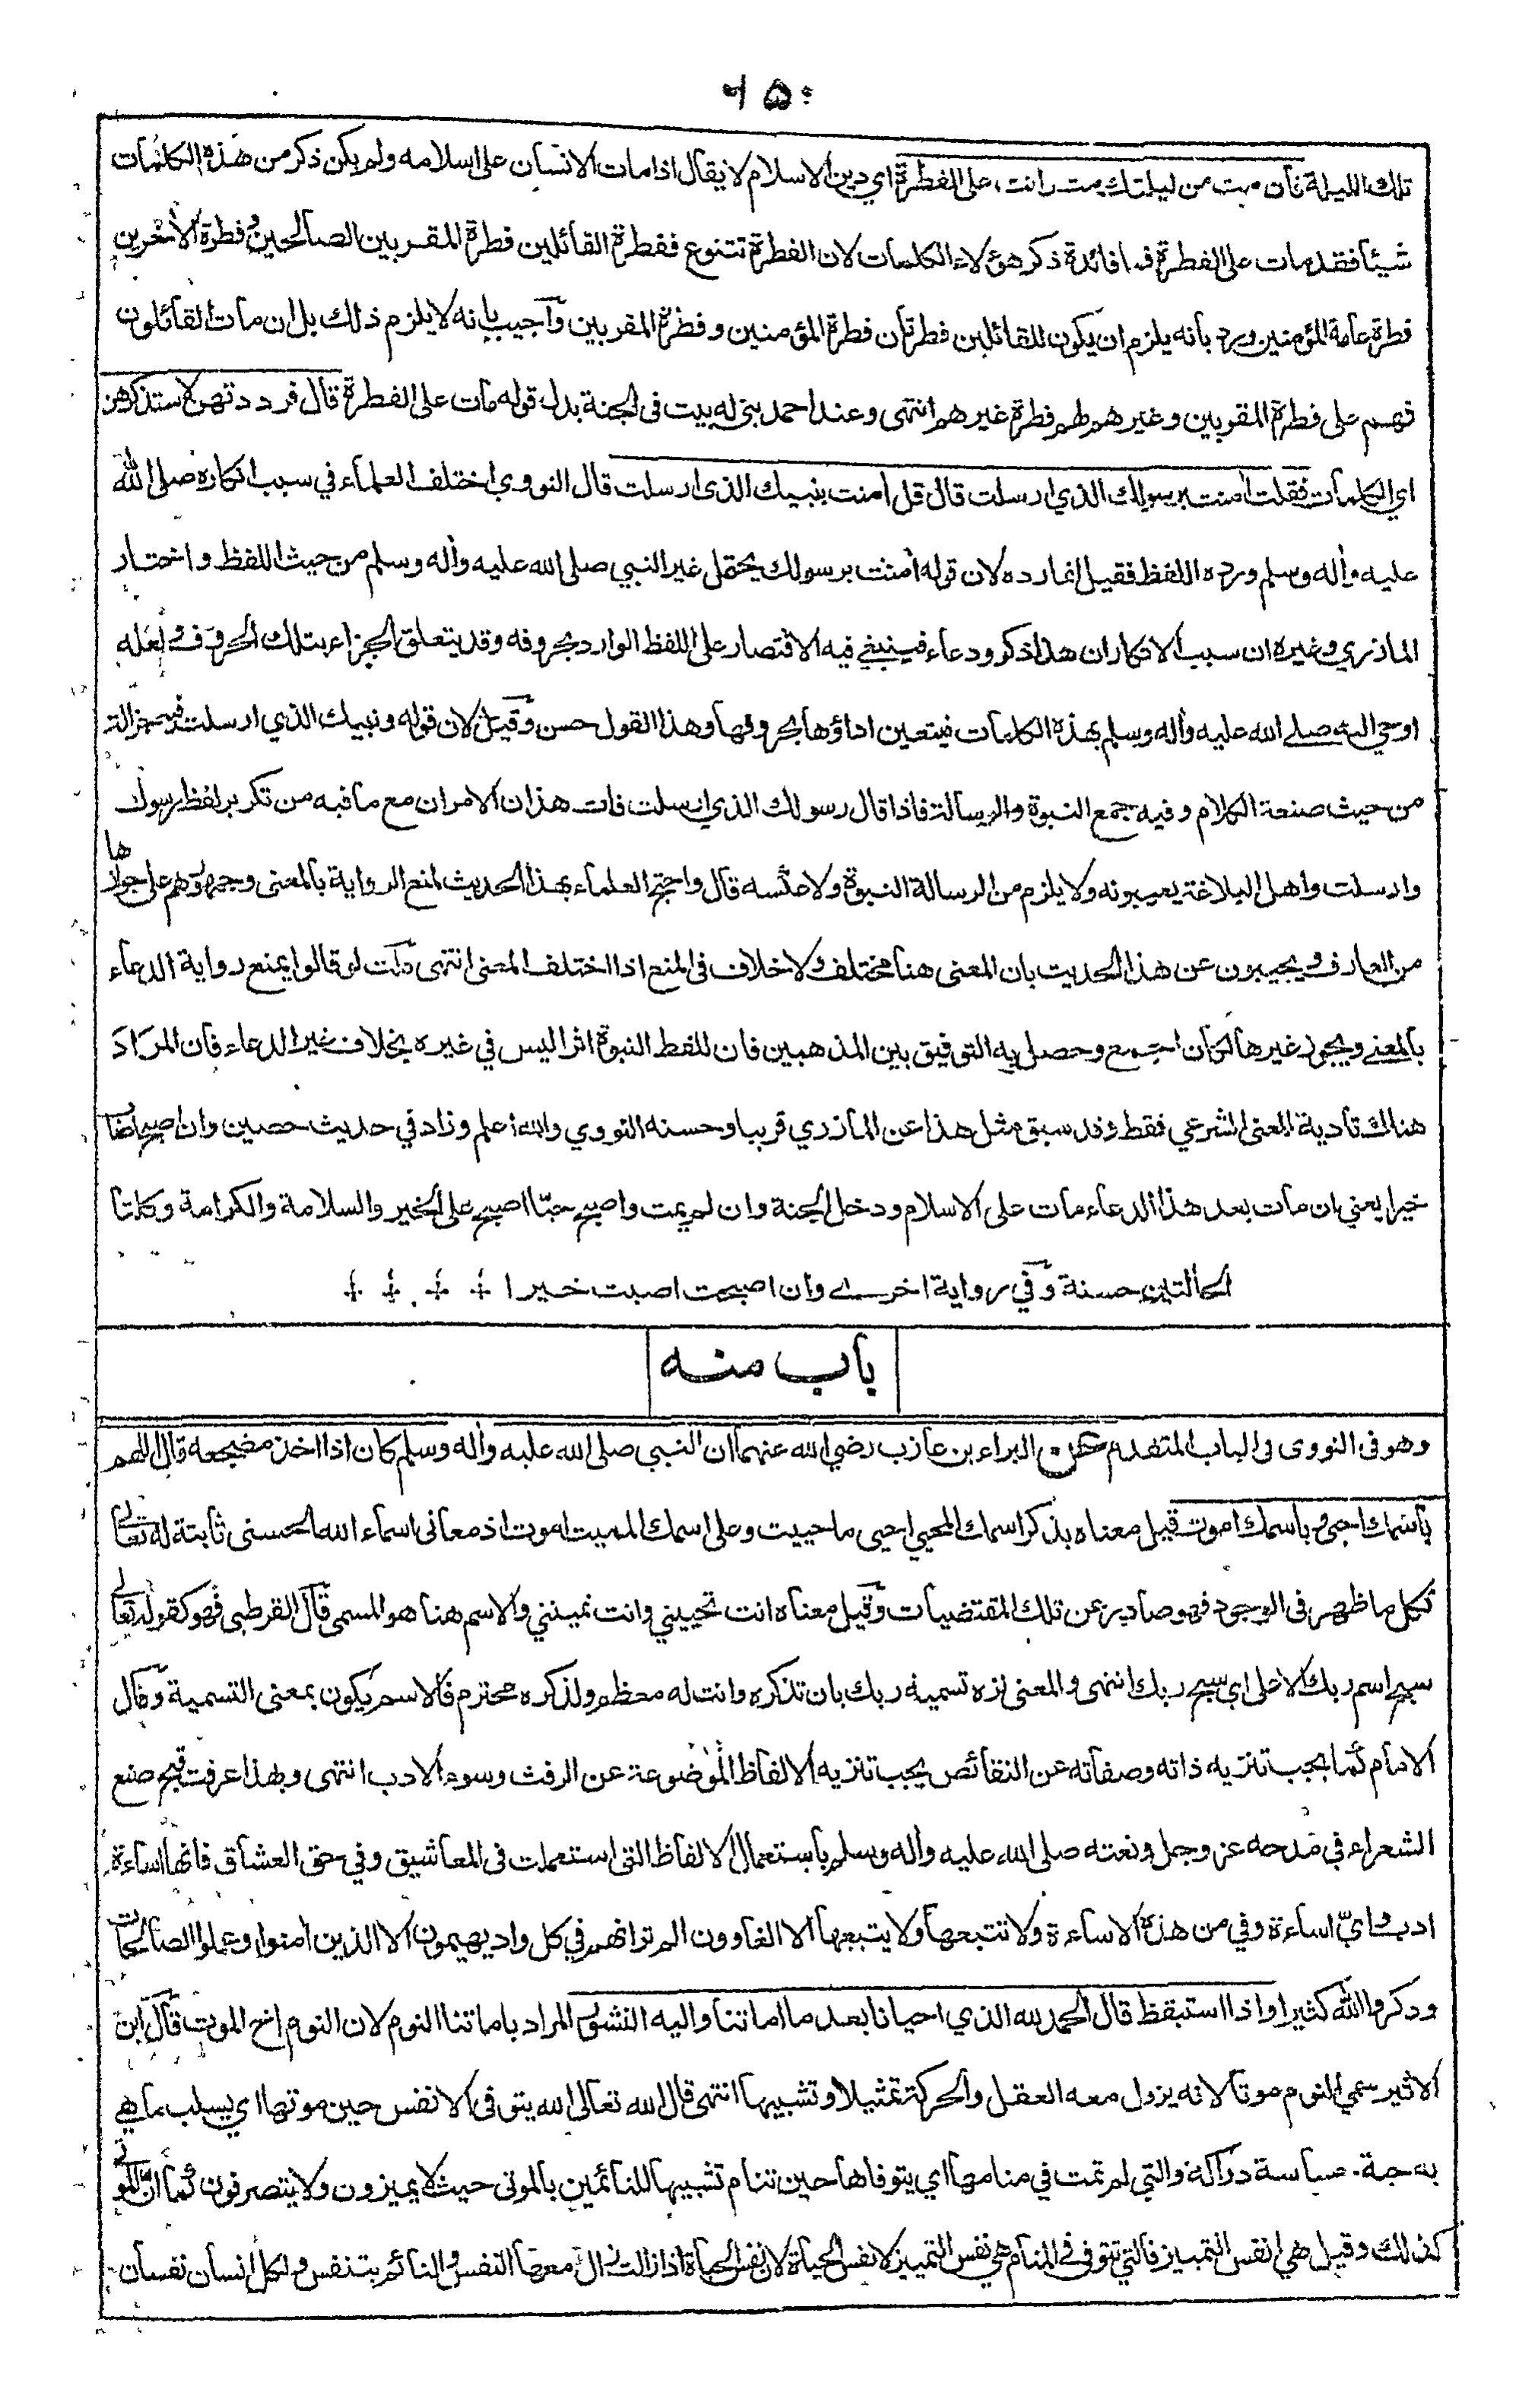 ٦٥٠
تلك الليلة فأن مت من ليلتك مت وانت على الفطرة اي دين الاسلام لا يقال اذا مات الانسان على اسلامه ولم يكن ذكر من هذه الكلمات
شيئا فقد مات على الفطرة فما فائدة ذكر هؤلاء الكلمات لان الفطرة تتنوع ففطرة القائلين فطرة المقربين الصالحين وفطرة الأخرين
فطرة عامة المؤمنين ورد بأنه يلزم ان يكون للقائلين فطرتان فطرة المؤمنين وفطرة المقربين وأجيب بانه لا يلزم ذلك بل ان مات القائلون
فهم على فطرة المقربين وغيرهم لهم فطرة غيرهم انتهى وعند احمد بني له بيت فى الجنة بدل قوله مات على الفطرة قال فرددتهن لاستذكرهن
اي الكلمات فقلت أمنت برسولك الذي ارسلت قال قل أمنت بنبيك الذى ارسلت قال النووي اختلف العلماء في سبب انكاره صلى الله
عليه وأله وسلم ورده اللفظ فقيل انما رده لان قوله أمنت برسولك يحتمل غير النبي صلى الله عليه وأله وسلم من حيث اللفظ واختار
المازري وغيره ان سبب الانكار ان هذا ذكر ودعاء فينبغي فيه الاقتصار على اللفظ الوارد بحروفه وقد يتعلق الجزاء بتلك الحروف ولعله
اوحي اليه صلے الله عليه وأله وسلم بهذه الكلمات فيتعين اداؤها بحروفها وهذا القول حسن وقيل لان قوله ونبيك الذي ارسلت فيه جزالة
من حيث صنعة الكلام وفيه جمع النبوة والرسالة فاذا قال رسولك الذي ارسلت فات هذان الامران مع ما فيه من تكرير لفظ رسول
وارسلت واهل البلاغة يعيبونه ولا يلزم من الرسالة النبوة ولا عكسه قال واحتج العلماء بهذا الحديث لمنع الرواية بالمعنى وجمهورهم على جوازها
من العارف ويجيبون عن هذا الحديث بان المعنى هنا مختلف ولا خلاف فى المنع اذا اختلف المعنى انتهى قلت لو قالوا يمنع رواية الدعاء
بالمعنى ويجوز غيرها لكان اجمع وحصل به التوفيق بين المذهبين فان للفظ النبوة اثرا ليس في غيره بخلاف غير الدعاء فأن المراد
هنالك تأدية المعنى الشرعي فقط وقد سبق مثل هذا عن المازري قريبا وحسنه النووي والله اعلم وزاد في حديث حصين وان اصبح اصاب
خيرا يعني ان مات بعد هذا الدعاء مات على الاسلام ودخل الجنة وان لم يمت واصبح حيّا اصبح على الخير والسلامة والكرامة وكلتا
الحالتين حسنة وفي رواية اخرے وان اصبحت اصبت خيرا
باب منه
وهو فى النووى فى الباب المتقدم عن البراء بن عازب رضي الله عنهما ان النبي صلى الله عليه وأله وسلم كان اذا اخذ مضجعه قال اللهم
باسمك احيى وباسمك اموت قيل معناه بذكر اسمك المحيي احيى ما حييت وعلى اسمك المميت اموت اذ معانى اسماء الله الحسنى ثابتة له تعالى
فكل ما ظهر فى الوجود فهو صادر عن تلك المقتضيات وقيل معناه انت تحييني وانت تميتني والاسم هنا هو المسمى قال القرطبى فهو كقوله تعالى
سبح اسم ربك الاعلى اي سبح ربك انتهى والمعنى نزه تسمية ربك بان تذكره وانت له معظم ولذكره محترم فالاسم يكون بمعنى التسمية وقال
الامام كما يجب تنزيه ذاته وصفاته عن النقائص يجب تنزيه الالفاظ الموضوعة عن الرفث وسوء الادب انتهى وبهذا عرفت قبح صنع
الشعراء في مدحه عز وجل ونعته صلى الله عليه وأله وسلم بأستعمال الالفاظ التى استعملت فى المعاشيق وفي حق العشاق فانها اساءة
ادب واي اساءة وفي من هذه الاساءة ولا تتبعها ولا يتبعها الا الغاوون الم تر انهم في كل واد يهيمون الا الذين أمنوا وعملوا الصالحات
وذكروا الله كثيرا واذا استيقظ قال الحمد لله الذي احيانا بعد ما اماتنا واليه النشور المراد باماتتنا النوم لان النوم اخ الموت قال ابن
الاثير سمي النوم موتا لانه يزول معه العقل والحركة تمثيلا وتشبيها انتهى قال الله تعالى الله يتوفى الانفس حين موتها اي يسلب ما هي
به حية حساسة دراكة والتي لم تمت في منامها اي يتوفاها حين تنام تشبيها للنائمين بالموتى حيث لا يميزون ولا يتصرفون كما ان الموتى
كذلك وقيل هي انفس التمييز فالتي تتوفى في المنام هي نفس التمييز لا نفس الحياة لان نفس الحياة اذا زالت زال معها النفس والنائم يتنفس ولكل انسان نفسان